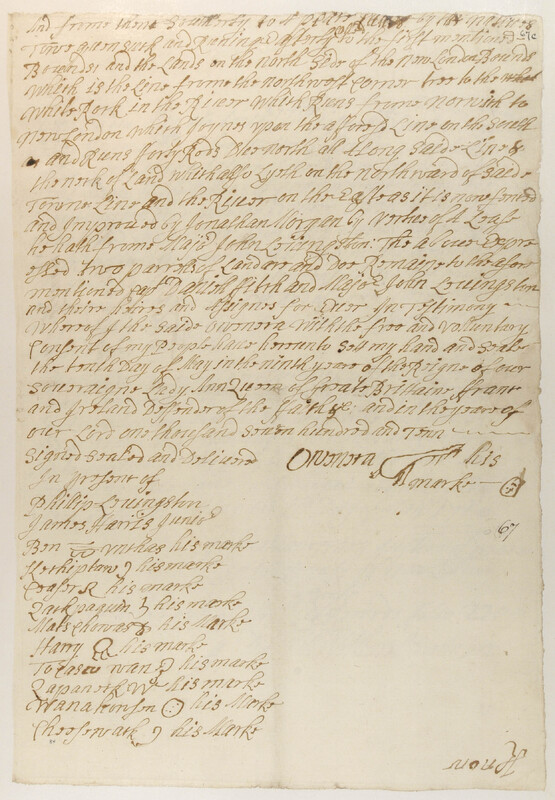 And from thence Southerly to a
and Runing
Bounds and the Lands on the North Side of the New London Bounds
which is the Line frome the Northwest Corner tree to the
White Rock in the River which Runs frome Norwich to
New London which Joynes upon the aforesd Line on the South
and Runs forty Rods Due north all Along Saide Line &
the neck of Land which allso Lyeth on the northward of Saide
Towne Line and the River on the East as it is now fenced
and Improved by Jonathan Morgan by vertue of A Lease
he hath frome Majr John Levingston: The above Expre
essed two parcels of Land are and Doe Remaine to the afore
mentioned Capt Daniell fitch and Major John Levingston
and theire heires and Assignes for Ever In Testimony
whereof I the Saide Owenoca with the free and voluntary
Consent of my People have hereunto Sett my hand and Seale
the tenth Day of May in the ninth yeare of the Reigne of our
Soveraigne Lady Ann Queen of Greate Brittaine france
and Ireland Defender of the faith &c: and in the yeare of
our Lord one thousand Seven hundred and Tenn
Signed Sealed and Delivered
In presents of
Owenoca his
marke
Phillip Levingston
James Harris Junir
67
Ben his marke
his marke
his marke
his marke
his Marke
Harry his marke
his marke
his marke
his Marke
his Marke